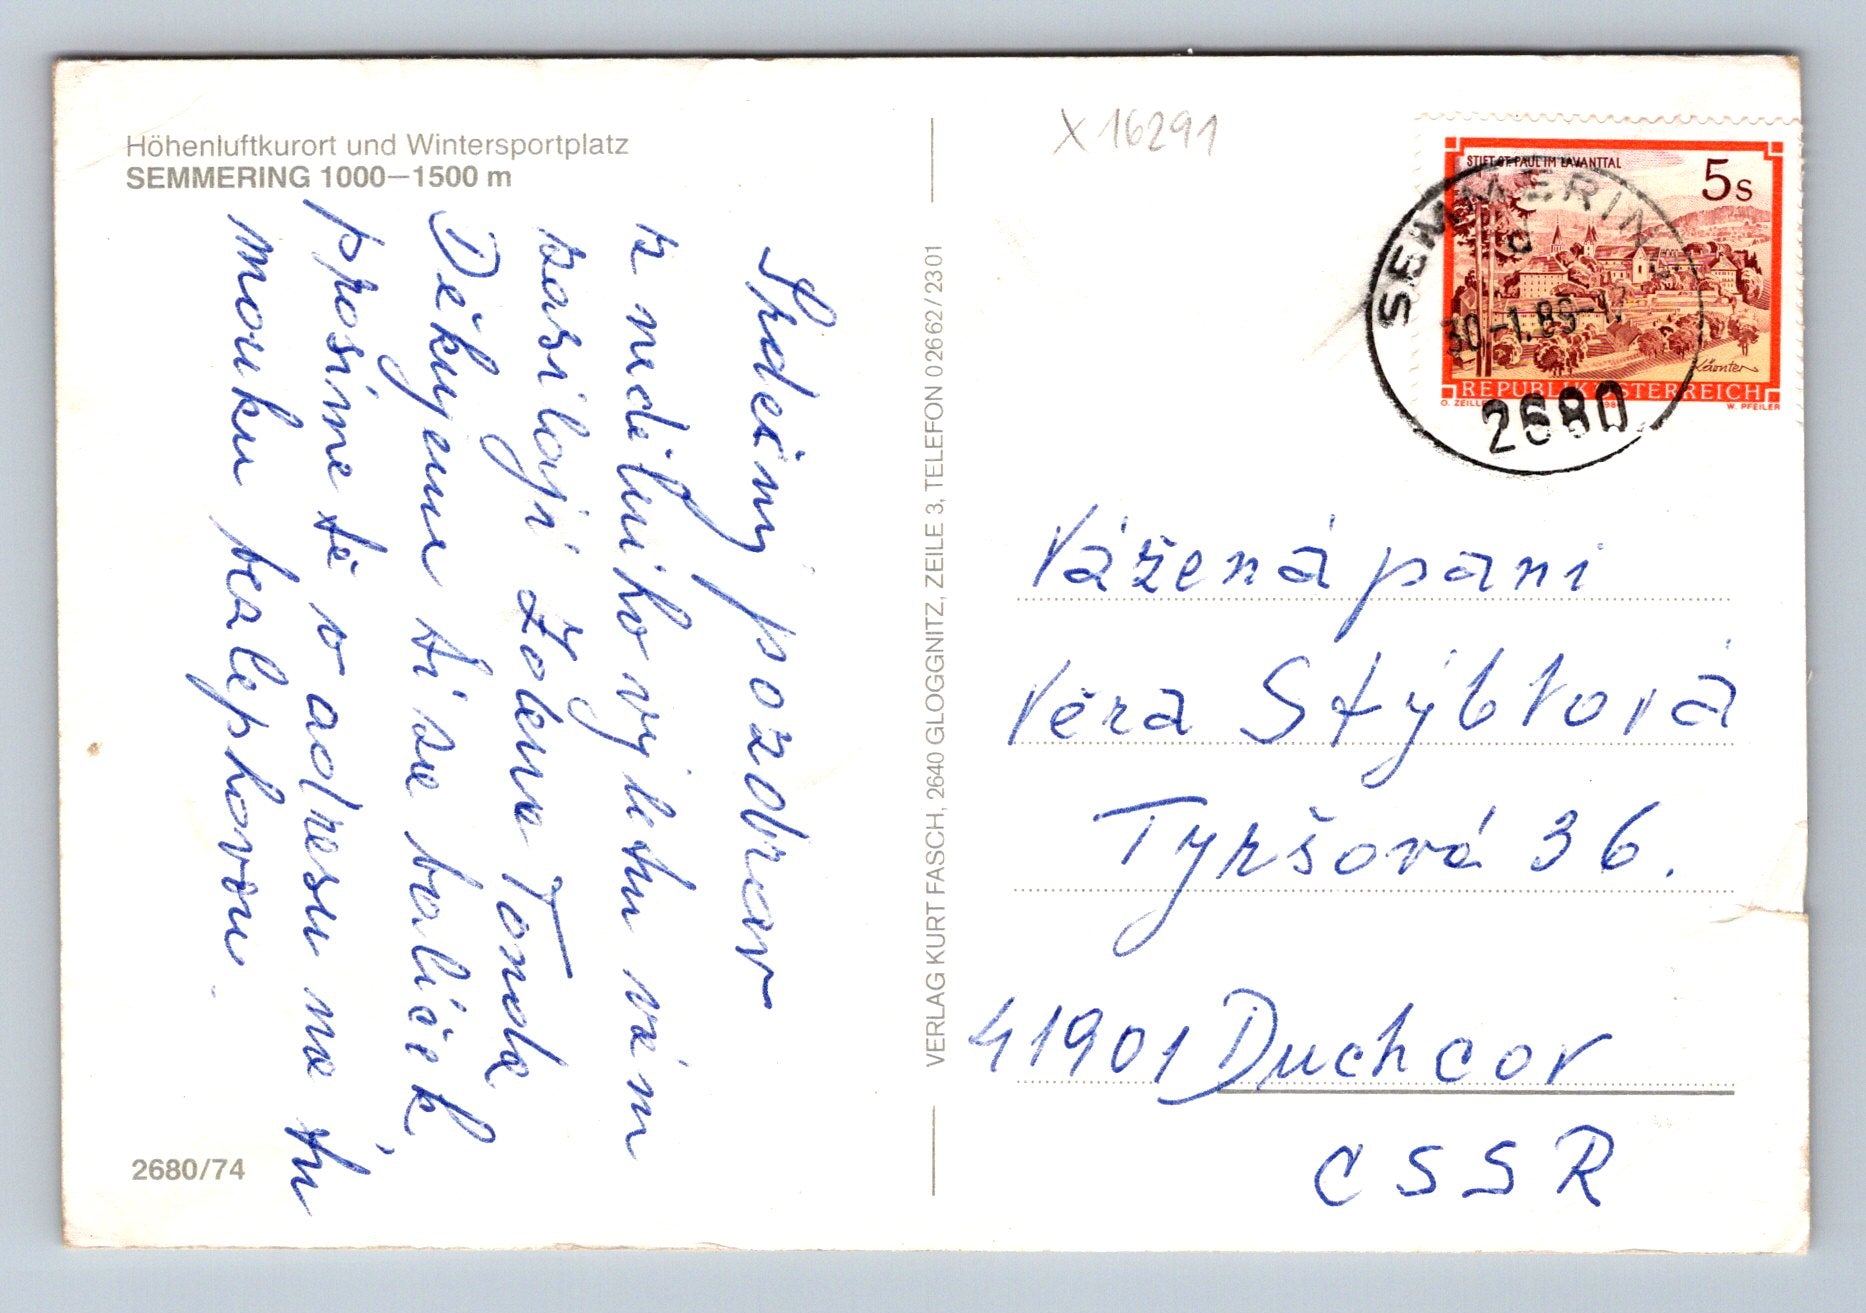 Höhenluftkurort und Wintersportplatz
SEMMERING 1000–1500 m
Srdečný pozdrav
z nedělního výletu vám
zasílají Tonda
Děkujeme ti za balíček,
prosíme tě o adresu na tu
mouku bezlepkovou.
2680/74
VERLAG KURT FASCH, 2640 GLOGGNITZ, ZEILE 3, TELEFON 02662/2301
X 16291
STIFT ST. PAUL IM LAVANTTAL
5s
Kärnten
REPUBLIK ÖSTERREICH
W. PFEILER
SEMMERING
30.-1.89-17
2680
Vážená pani
Věra Stýblová
Tyršová 36.
41901 Duchcov
CSSR